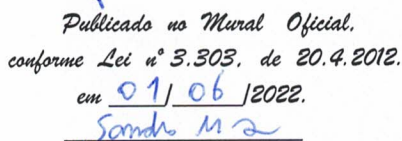 Publicado no Mural Oficial,
conforme Lei nº 3.303, de 20.4.2012.
em 01/06/2022.